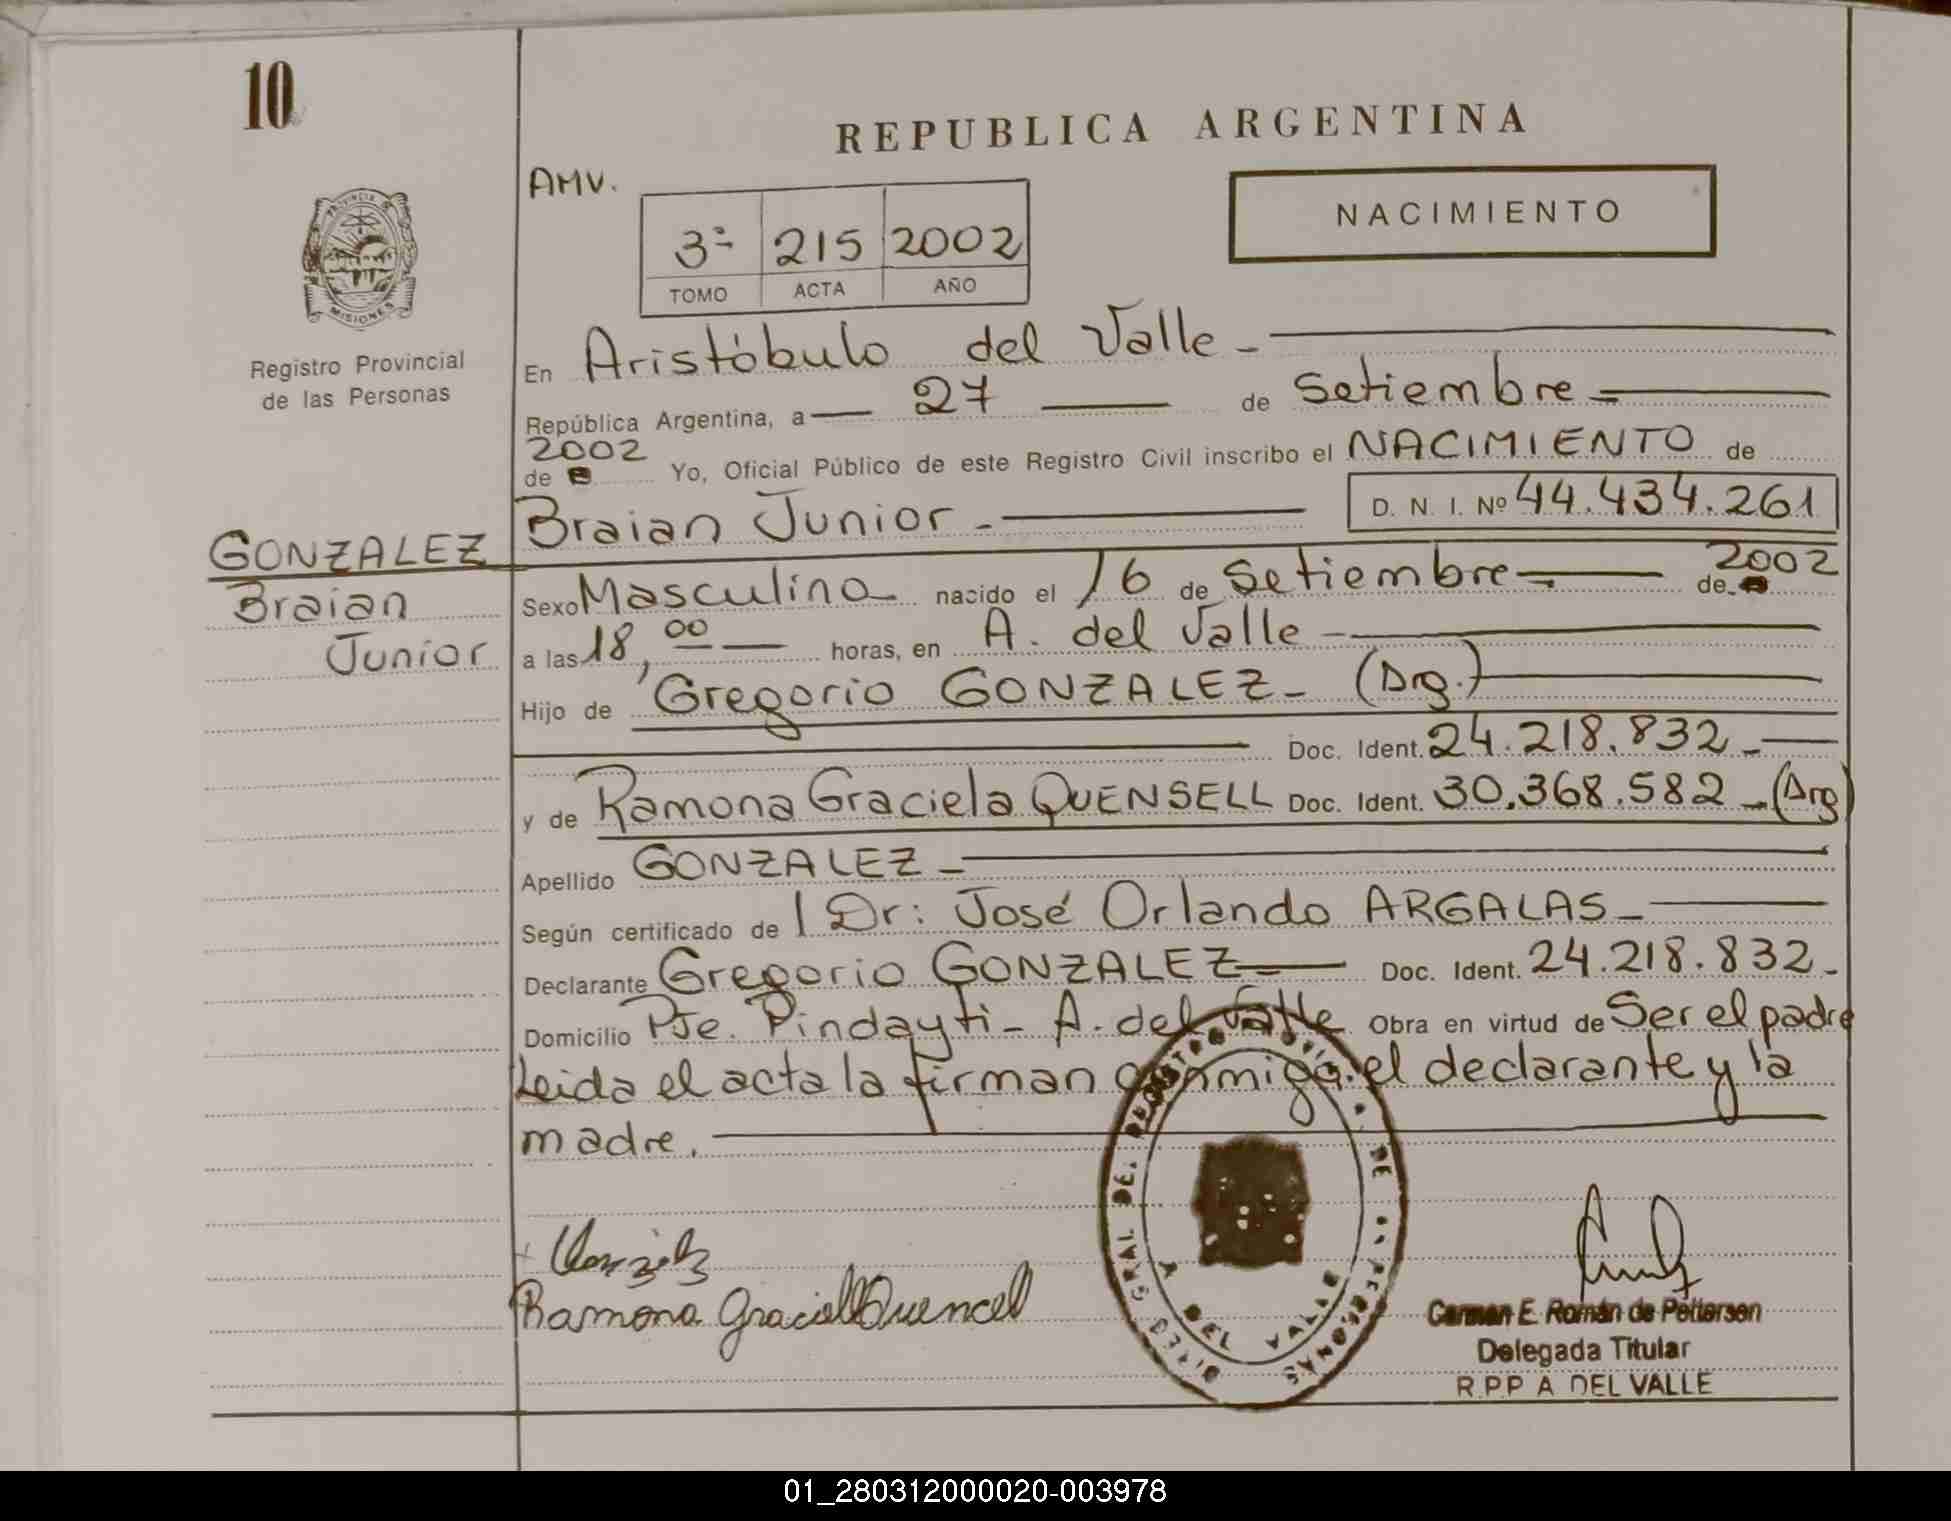 10
REPUBLICA ARGENTINA
AMV.
NACIMIENTO
3ª 215 2002
TOMO ACTA AÑO
PROVINCIA DE
MISIONES
Registro Provincial
de las Personas
En Aristóbulo del Valle -
República Argentina, a 27 de Setiembre
2002
de Yo, Oficial Público de este Registro Civil inscribo el NACIMIENTO de
Braian Junior - D. N. I. Nº 44.434.261
GONZALEZ
Braian
Junior
Sexo Masculino nacido el 16 de Setiembre de 2002
a las 18,00 horas, en A. del Valle -
Hijo de Gregorio GONZALEZ - (Arg.)
Doc. Ident. 24.218.832 -
y de Ramona Graciela QUENSELL Doc. Ident. 30.368.582 - (Arg)
Apellido GONZALEZ -
Según certificado de Dr: José Orlando ARGALAS -
Declarante Gregorio GONZALEZ Doc. Ident. 24.218.832 -
Domicilio Pje. Pindayti - A. del Valle Obra en virtud de Ser el padre
Leida el acta la firman conmigo: el declarante y la
madre.
Ramona Graciell Quencel
GRAL DE. REGISTRO PROVICIA. DE PERSONAS
A DEL VALLE
Carmen E. Román de Pettersen
Delegada Titular
R.P.P A DEL VALLE
01_280312000020-003978